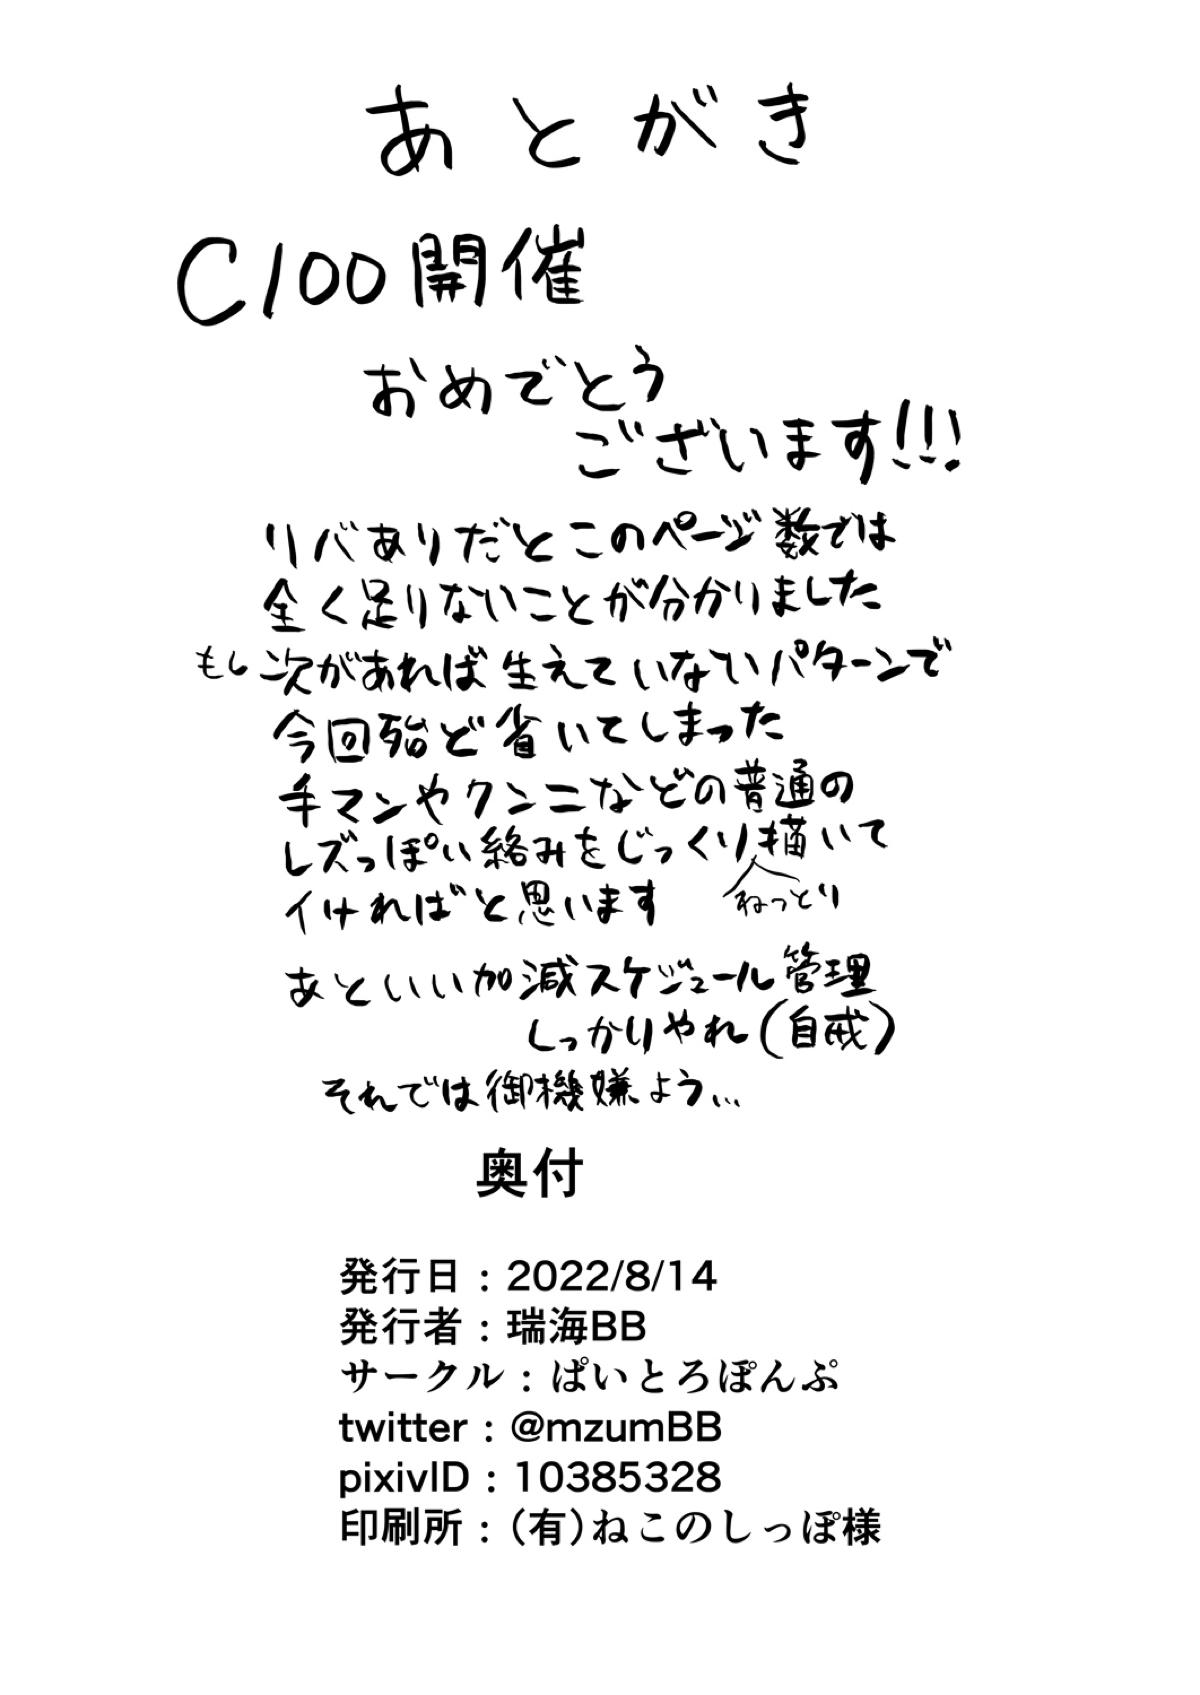 あとがき
C100開催
おめでとう
ございます!!!
リバありだとこのページ数では
全く足りないことが分かりました
もし次があれば生えていないパターンで
今回殆ど省いてしまった
手マンやクンニなどの普通の
レズっぽい絡みをじっくり描いて
ねっとり
イければと思います
あといい加減スケジュール管理
しっかりやれ(自戒)
それでは御機嫌よう...
奥付
発行日:2022/8/14
発行者:瑞海BB
サークル:ぱいとろぽんぷ
twitter:@mzumBB
pixivID:10385328
印刷所:(有)ねこのしっぽ様